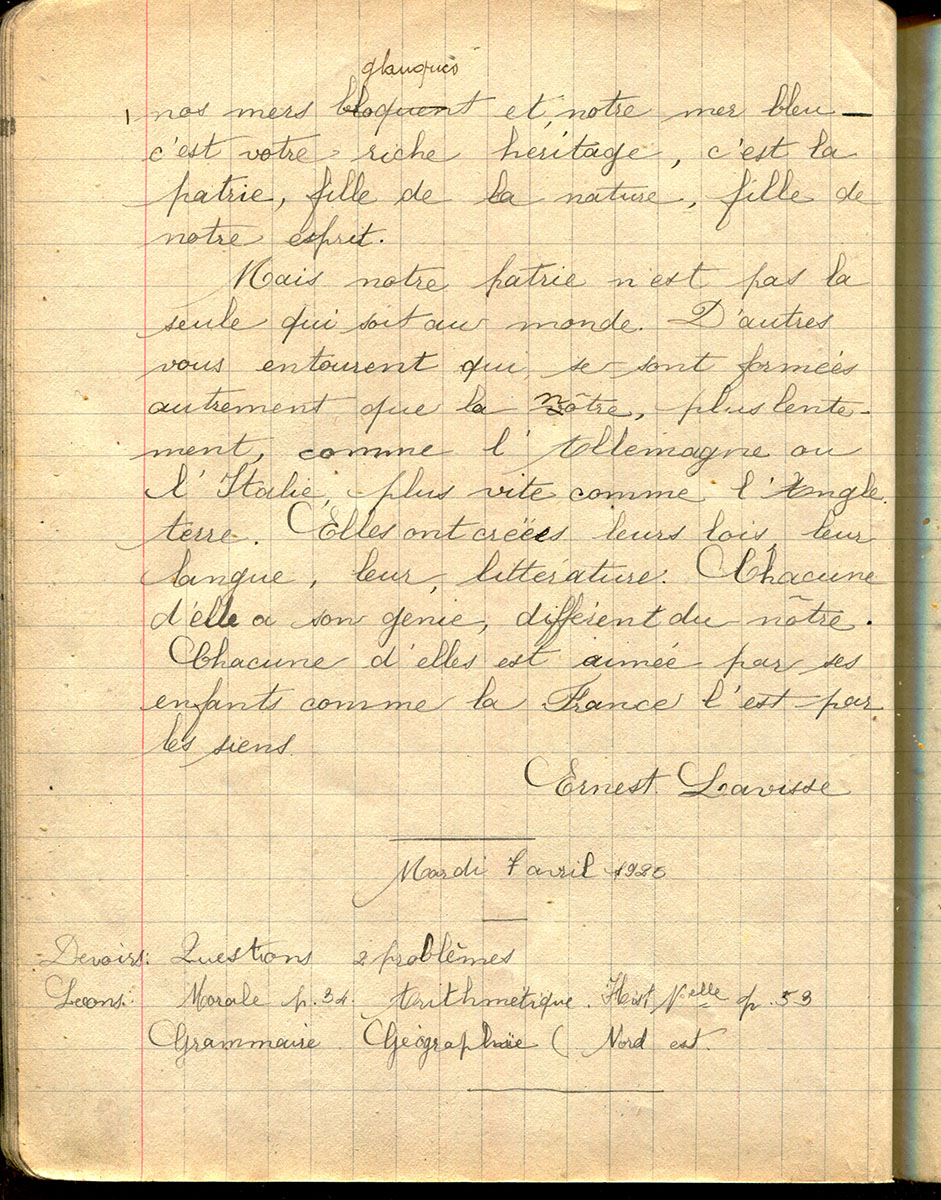 glauques
nos mers bloquent et notre mer bleu
c'est votre riche héritage, c'est la
patrie, fille de la nature, fille de
notre esprit.
Mais notre patrie n'est pas la
seule qui soit au monde. D'autres
vous entourent qui se sont formées
autrement que la nôtre, plus lente-
ment, comme l'Allemagne ou
l'Italie, plus vite comme l'Angle
terre. Elles ont créées leurs lois, leur
langue, leur littérature. Chacune
d'elle a son génie, différent du nôtre.
Chacune d'elles est aimée par ses
enfants comme la France l'est par
les siens.
Ernest Lavisse
Mardi 7 avril
Devoirs: Questions 2 problèmes
Lecons: Morale p. 34. Arithmétique. Hist Nelle p. 53
Grammaire. Géographie (Nord est.